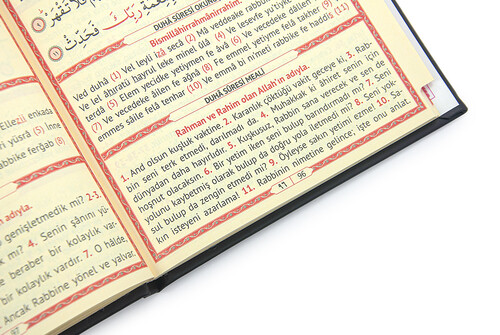 فَحَدِّثْ
DUHÂ SÛRESİ OKUNUŞU
Bismillâhirrahmânirrahîm.
Ved duhâ (1) Vel leyli izâ secâ (2) Mâ veddeake rabbüke
Ve lel âhıratü hayrul leke minel ûlâ (4) Ve lesevfe yu'tıyke
terdâ (5) Elem yecidke yetîmen fe âvâ (6) Ve vecedeke dâllen
(7) Ve vecedeke âilen fe ağnâ (8) Fe emmel yetîme felâ takher (9)
emmes sâile felâ tenhar (10) Ve emmâ bi nı'meti rabbike fe haddis (11)
DUHÂ SÛRESİ MEALİ
Rahman ve Rahîm olan Allah'ın adıyla.
1. And olsun kuşluk vaktine. 2. Karanlık çöktüğü vakit geceye ki, 3. Rab-
bin seni terk etmedi, darılmadı da. 4. Muhakkak ki âhiret senin için
dünyadan daha hayırlıdır. 5. Kuşkusuz, Rabbin sana verecek ve sen de
hoşnut olacaksın. 6. Bir yetim iken seni bulup barındırmadı mı? 7. Seni
yolunu kaybetmiş olarak bulup da doğru yola iletmedi mi? 8. Seni yok-
sul bulup da zengin etmedi mi? 9. Öyleyse sakın yetimi ezme! 10. Sa-
kın isteyeni azarlama! 11. Rabbinin nimetine gelince; işte onu anlat.
96
Ellezî enkada
yüsrâ (5) İnne
rabbike ferğab (8)
adıyla.
genişletmedik mi? 2-3.
mi? 4. Senin şânını yü-
e beraber bir kolaylık var-
bir kolaylık vardır. 7. O hâlde,
Ancak Rabbine yönel ve yalvar.